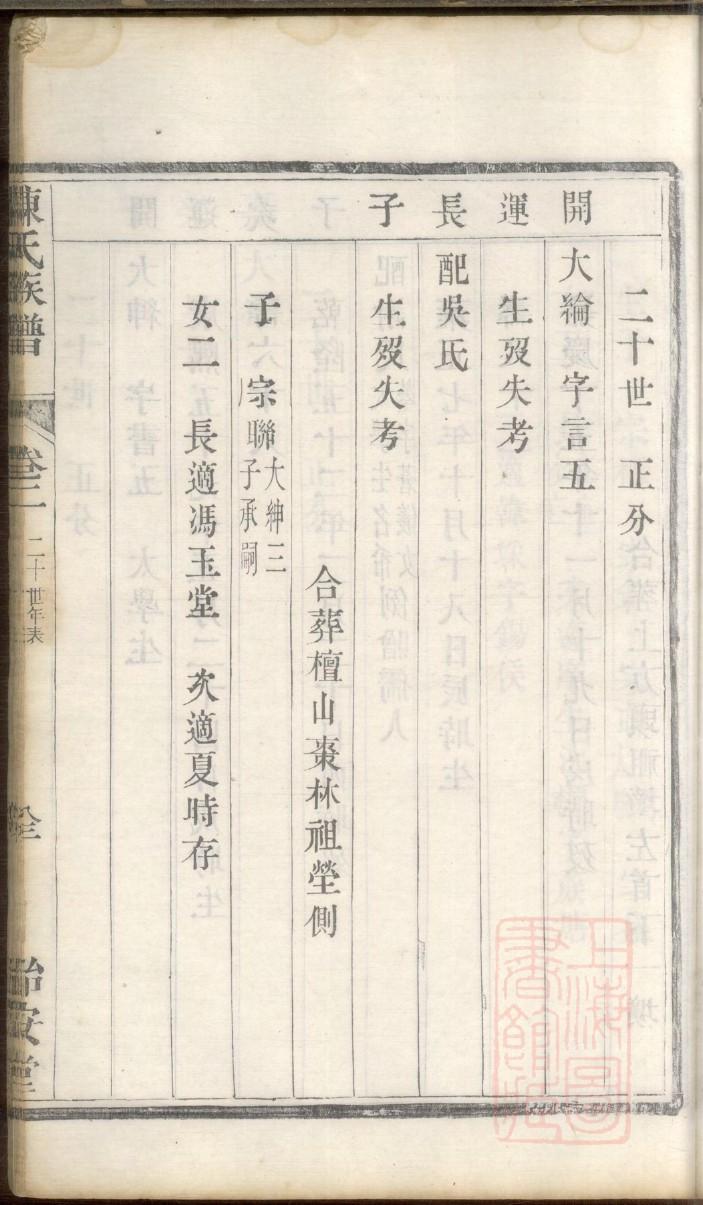 二十世 正分
開運長子
大綸 字言五
生歿失考
配吳氏
生歿失考
合葬檀山棗林祖塋側
子 宗聯 大紳三子承嗣
女二 長適馮玉堂 次適夏時存
陳氏族譜
卷二 二十世年表
治安堂
上海圖書館藏